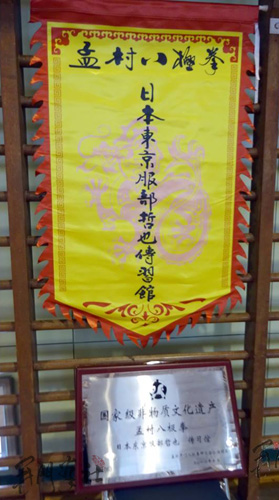 孟村八極拳
日本東京服部哲也傳習館
国家级非物质文化遗产
孟村八极拳
日本东京服部哲也 传习馆